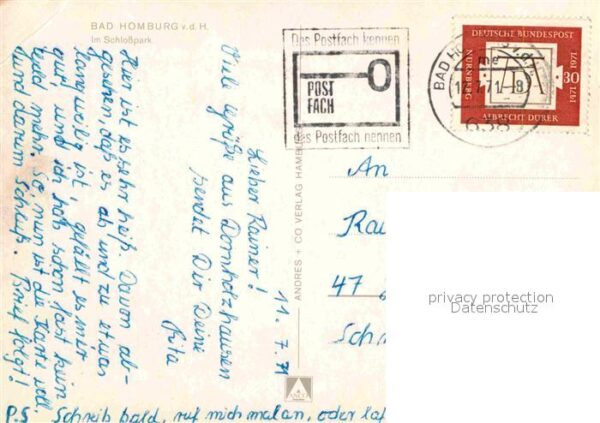 BAD HOMBURG v. d. H.
Im Schloßpark
11. 7. 71
Lieber Rainer!
Viele Grüße aus Dornholzhausen
sendet Dir Deine
Rita
Hier ist es sehr heiß. Davon ab-
gesehen, daß es ab und zu etwas
langweilig ist, gefällt es mir
gut, und ich hab schon fast kein
mehr. So, nun ist die Karte voll
und darum Schluß. Brief folgt!
P.S Schreib bald, ruf mich mal an, oder laß
ANDRES + CO VERLAG HAMBURG
Das Postfach kennen
POST
FACH
das Postfach nennen
BAD HO
638
DEUTSCHE BUNDESPOST
NÜRNBERG
1471 1971
30
ALBRECHT DÜRER
An
Rai
47
Sch
privacy protection
Datenschutz